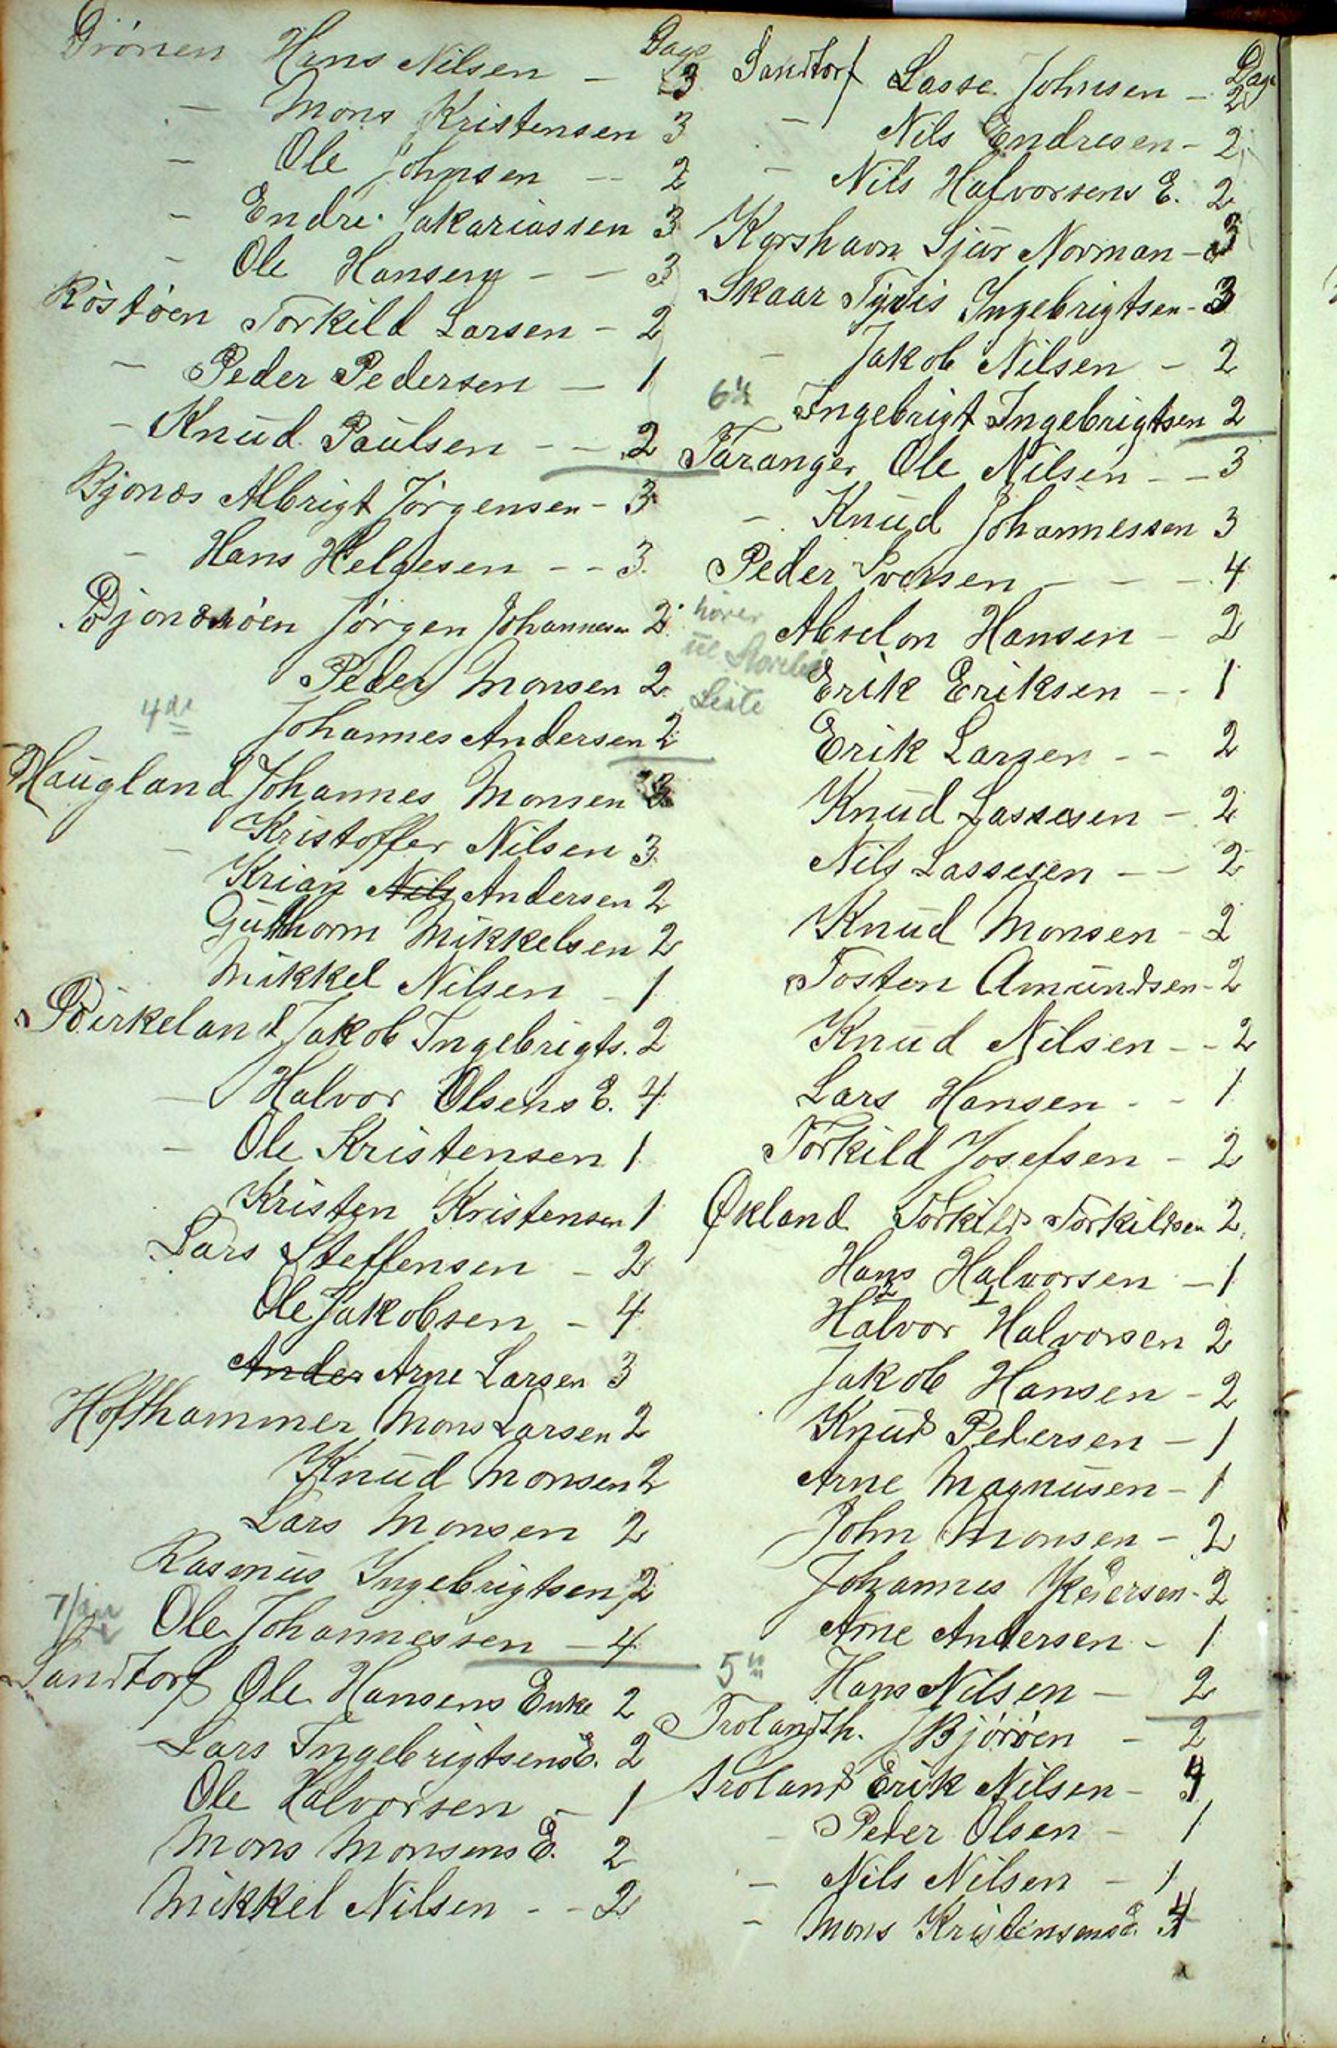 Drönen Hans Nilsen — Dage 3
— Mons Kristensen 3
— Ole Johnsen — 2
— Endre Sakariassen 3
— Ole Hansen — — 3
Röstöen Torkild Larsen — 2
— Peder Pedersen — 1
— Knud Paulsen — — 2
Bjönæs Albrigt Jörgensen — 3
— Hans Helgesen — — 3
Bjonæröen Jörgen Johannesen 2
Peder Monsen 2
4de Johannes Andersen 2
Haugland Johannes Monsen 3
— Kristoffer Nilsen 3
Krian Nils Andersen 2
Guthorm Mikkelsen 2
Mikkel Nilsen — 1
Birkeland Jakob Ingebrigts. 2
— Halvor Olsens E. 4
— Ole Kristensen 1
Kristen Kristensen 1
Lars Steffensen — 2
Ole Jakobsen — 4
Ander Arne Larsen 3
Hofthammer Mons Larsen 2
Knud Monsen 2
Lars Monsen 2
Rasmus Ingebrigtsen 2
Ole Johannessen — 4
Sandtorf Ole Hansens Enke 2
Lars Ingebrigtsens E. 2
Ole Halvorsen — 1
Mons Monsens E. 2
Mikkel Nilsen — — 2
Sandtorf Lasse Johnsen — Dage 2
— Nils Endresen — 2
— Nils Halvorsens E. 2
Korshavn Sjur Norman — 3
Skaar Ingebrigtsen — 3
— Jakob Nilsen — 2
6te Ingebrigt Ingebrigtsen 2
Taranger Ole Nilsen — — 3
— Knud Johannessen 3
Peder Iversen — — — 4
hörer Abselon Hansen — 2
til Erik Eriksen — — 1
Liste Erik Larsen — — 2
Knud Lassesen — 2
Nils Lassesen — — 2
Knud Monsen — 2
Tosten Amundsen — 2
Knud Nilsen — — 2
Lars Hansen — — 1
Torkild Josefsen — 2
Økland Torkild Torkildsen 2
Hans Halvorsen — 1
2 1
Halvor Halvorsen 2
Jakob Hansen — 2
Knud Pedersen — 1
Arne Magnusen — 1
John Monsen — 2
Johannes Pedersen — 2
Arne Andersen — 1
5te Hans Nilsen — 2
Trolandsh. Björöen — 2
Troland Erik Nilsen — 4
— Peder Olsen — 1
— Nils Nilsen — 1
— Mons Kristensens E. 4